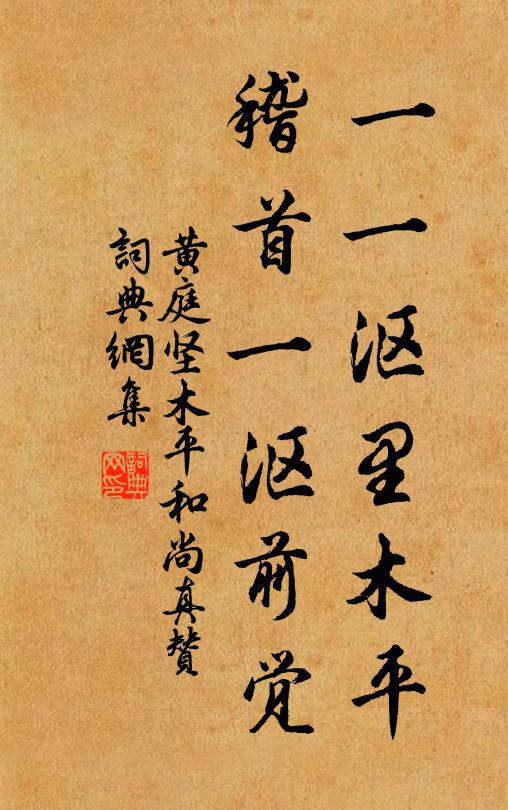 一一沤里木平
稽首一沤前觉
黄庭坚木平和尚真赞
詞典網集
詞典
网印